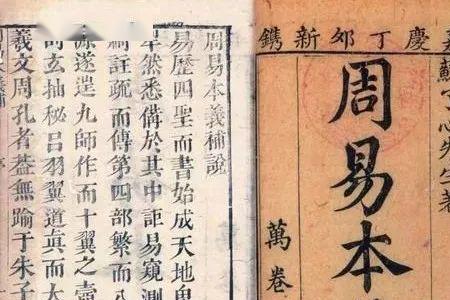 慶丁卯新鐫
心先生著
周易本
萬卷
周易本義補說
易歷四聖而書始成天地
然悉備於其中詎易窺測
註疏而傳第四部繁而
遂迨九師作而十翼之
玄抽秘呂羽翼道眞而大
羲文周孔者葢無踰于朱子